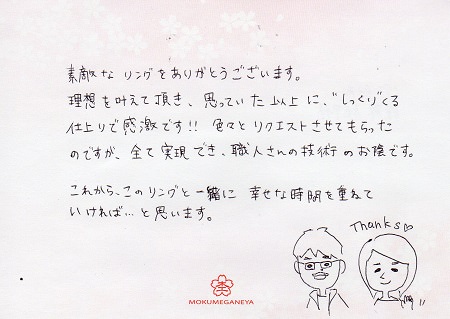 素敵な リングをありがとうございます。
理想を叶えて頂き、思っていた以上に、"しっくり"くる
仕上りで感激です!! 色々とリクエストさせてもらった
のですが、全て実現でき、職人さんの技術のお陰です。
これから、このリングと一緒に 幸せな時間を重ねて
いければ…と思います。
Thanks♡
MOKUMEGANEYA